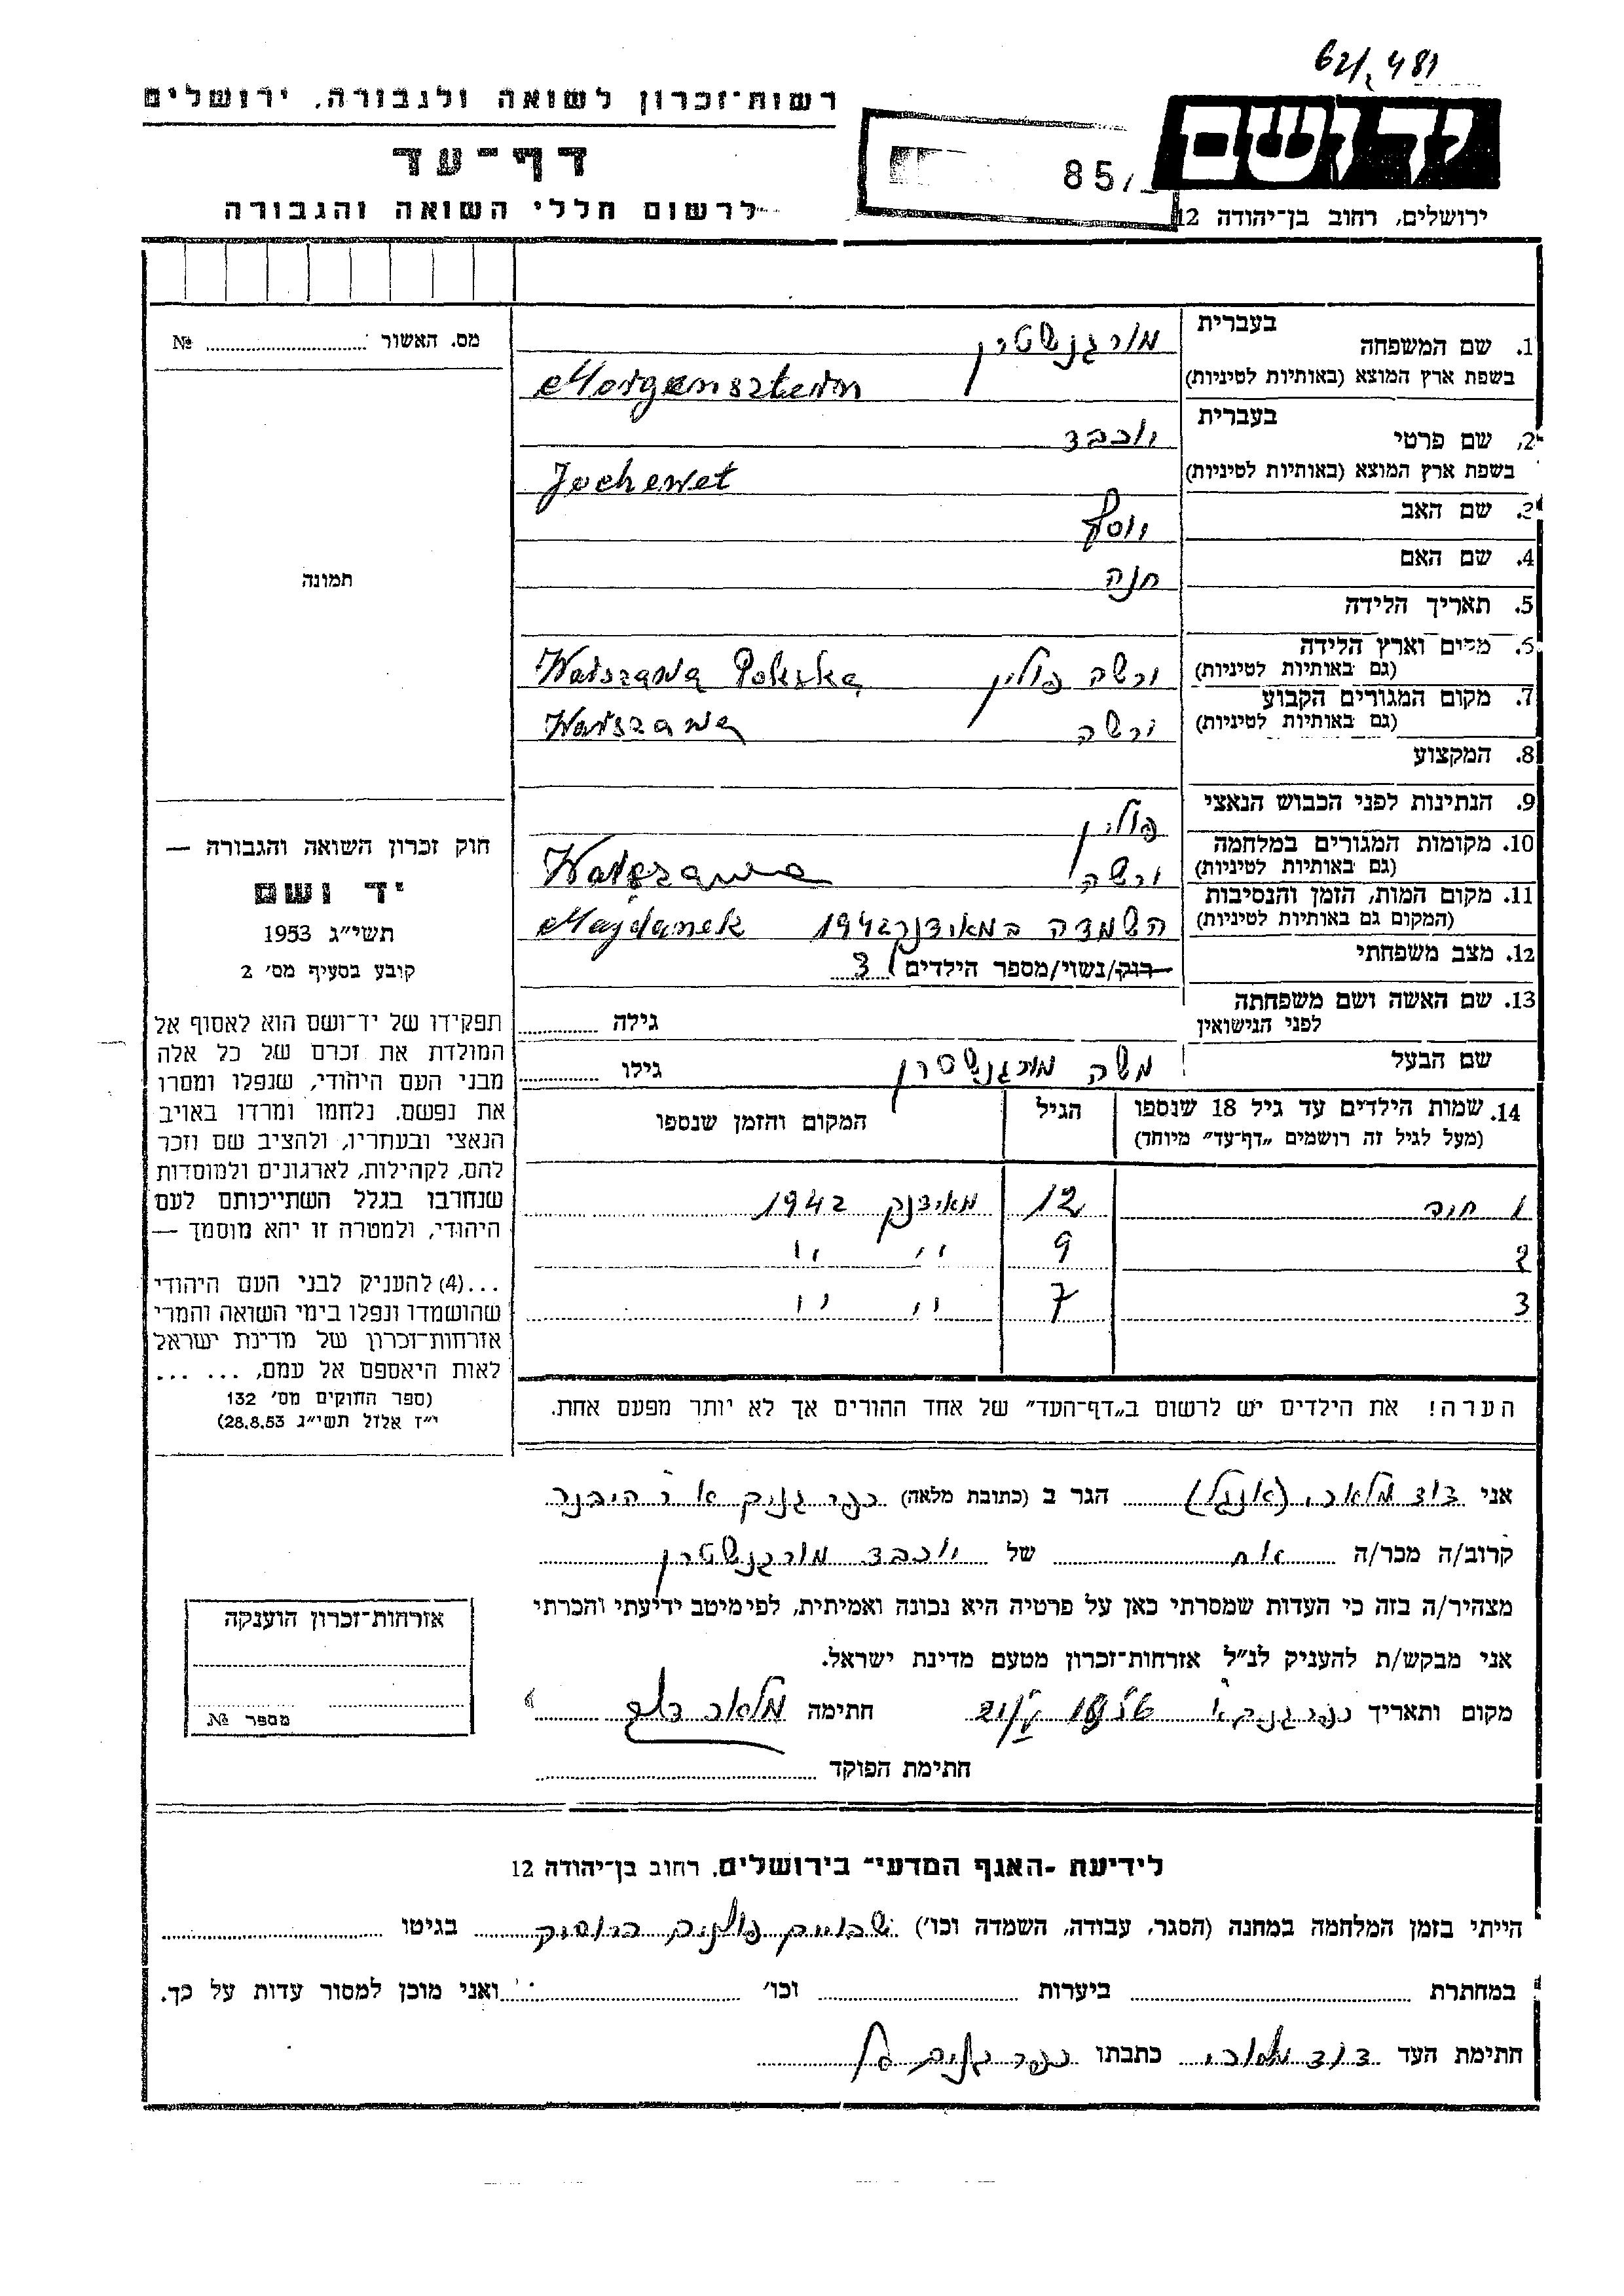 62/481
יד ושם
רשות־זכרון לשואה ולגבורה, ירושלים
דף־עד
לרשום חללי השואה והגבורה
85/
ירושלים, רחוב בן־יהודה 12
1. שם המשפחה בעברית מורגנשטרן
בשפת ארץ המוצא (באותיות לטיניות) Morgensztern
2. שם פרטי בעברית יוכבד
בשפת ארץ המוצא (באותיות לטיניות) Jochewet
3. שם האב יוסף
4. שם האם חנה
5. תאריך הלידה
6. מקום וארץ הלידה
(גם באותיות לטיניות) ורשה פולין Warszawa Polska
7. מקום המגורים הקבוע
(גם באותיות לטיניות) ורשה Warszawa
8. המקצוע
9. הנתינות לפני הכבוש הנאצי פולין
10. מקומות המגורים במלחמה
(גם באותיות לטיניות) ורשה Warszawa
11. מקום המות, הזמן והנסיבות
(המקום גם באותיות לטיניות) השמדה במאידנק 1942 Majdanek
12. מצב משפחתי רווק/נשוי/מספר הילדים 3
13. שם האשה ושם משפחתה
לפני הנישואין גילה
שם הבעל משה מורגנשטרן גילו
14. שמות הילדים עד גיל 18 שנספו הגיל המקום והזמן שנספו
(מעל לגיל זה רושמים „דף־עד” מיוחד)
1 חוה 12 מאידנק 1942
2 9 " "
3 7 " "
הערה! את הילדים יש לרשום ב„דף־העד” של אחד ההורים אך לא יותר מפעם אחת.
מס. האשור №
תמונה
חוק זכרון השואה והגבורה —
יד ושם
תשי״ג 1953
קובע בסעיף מס׳ 2
תפקידו של יד־ושם הוא לאסוף אל
המולדת את זכרם של כל אלה
מבני העם היהודי, שנפלו ומסרו
את נפשם. נלחמו ומרדו באויב
הנאצי ובעוזריו, ולהציב שם וזכר
להם, לקהילות, לארגונים ולמוסדות
שנחרבו בגלל השתייכותם לעם
היהודי, ולמטרה זו יהא מוסמך —
...(4) להעניק לבני העם היהודי
שהושמדו ונפלו בימי השואה והמרי
אזרחות־זכרון של מדינת ישראל
לאות היאספם אל עמם, ... ...
(ספר החוקים מס׳ 132
י״ז אלול תשי״ג 28.8.53)
אני דוד מלאכי (אנגל) הגר ב (כתובת מלאה) כפר גנים א
קרוב/ה מכר/ה אח של יוכבד מורגנשטרן
מצהיר/ה בזה כי העדות שמסרתי כאן על פרטיה היא נכונה ואמיתית, לפי מיטב ידיעתי והכרתי
אני מבקש/ת להעניק לנ״ל אזרחות־זכרון מטעם מדינת ישראל.
מקום ותאריך כפר גנים א חתימה מלאכי דוד
חתימת הפוקד
אזרחות־זכרון הוענקה
מספר №
לידיעת -האגף המדעי־ בירושלים, רחוב בן־יהודה 12
הייתי בזמן המלחמה במחנה (הסגר, עבודה, השמדה וכו׳) בגיטו
במחתרת ביערות וכו׳ ואני מוכן למסור עדות על כך.
חתימת העד דוד מלאכי כתבתו כפר גנים